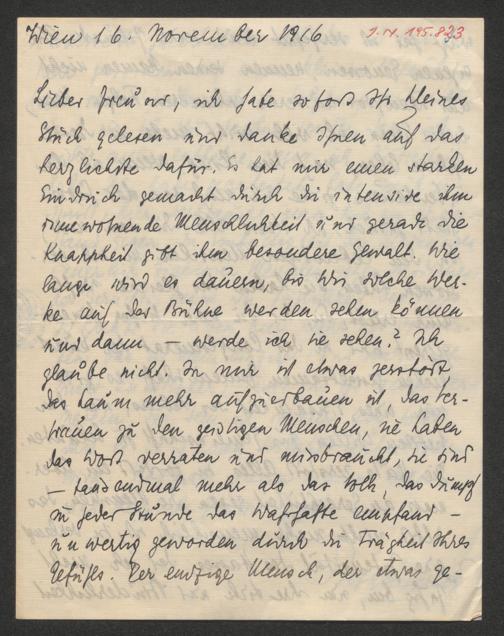 Wien 16. November 1916
I.N. 195.823
Lieber Freund, ich habe sofort Ihr kleines
Stück gelesen und danke Ihnen auf das
herzlichste dafür. Es hat mir einen starken
Eindruck gemacht durch die intensive ihm
innewohnende Menschlichkeit und gerade die
Knappheit gibt ihm besondere Gewalt. Wie
lange wird es dauern, bis wir solche Wer-
ke auf der Bühne werden sehen können
und dann – werde ich sie sehen? Ich
glaube nicht. In mir ist etwas zerstört
das kaum mehr aufzuerbauen ist, das Ver-
trauen zu den geistigen Menschen, sie haben
das Wort verraten und missbraucht, sie sind
– tausendmal mehr als das Volk, das dumpf
in jeder Stunde das Wahrhafte empfand –
unwertig geworden durch die Trägheit Ihres
Gefühls. Der einzige Mensch, der etwas ge-